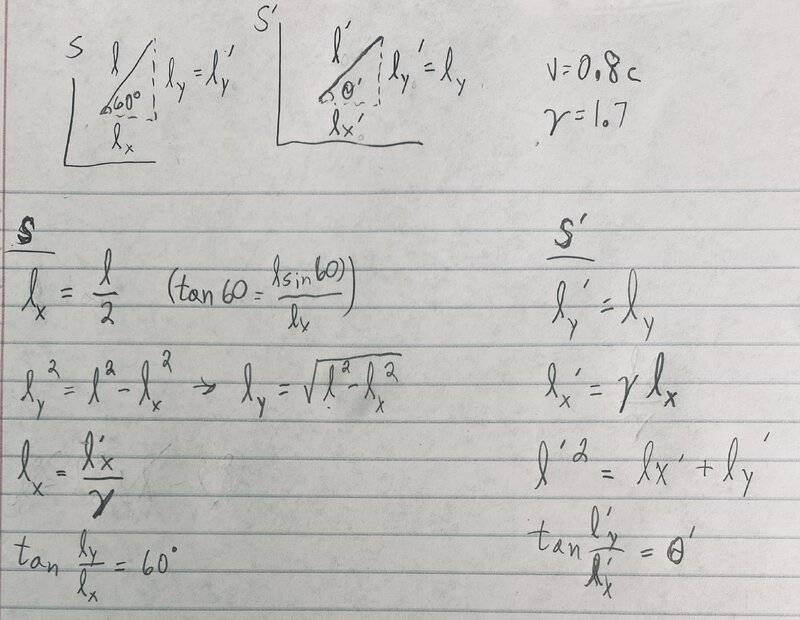 S l l_y = l_y' 60° l_x
S' l' l_y' = l_y θ' l_x'
v = 0.8c
γ = 1.7
S
l_x = l/2 (tan 60 = l sin 60)/l_x)
l_y² = l² - l_x² → l_y = √(l² - l_x²)
l_x = l'_x/γ
tan l_y/l_x = 60°
S'
l_y' = l_y
l_x' = γ l_x
l'² = lx' + l_y'
tan l'_y/l'_x = θ'